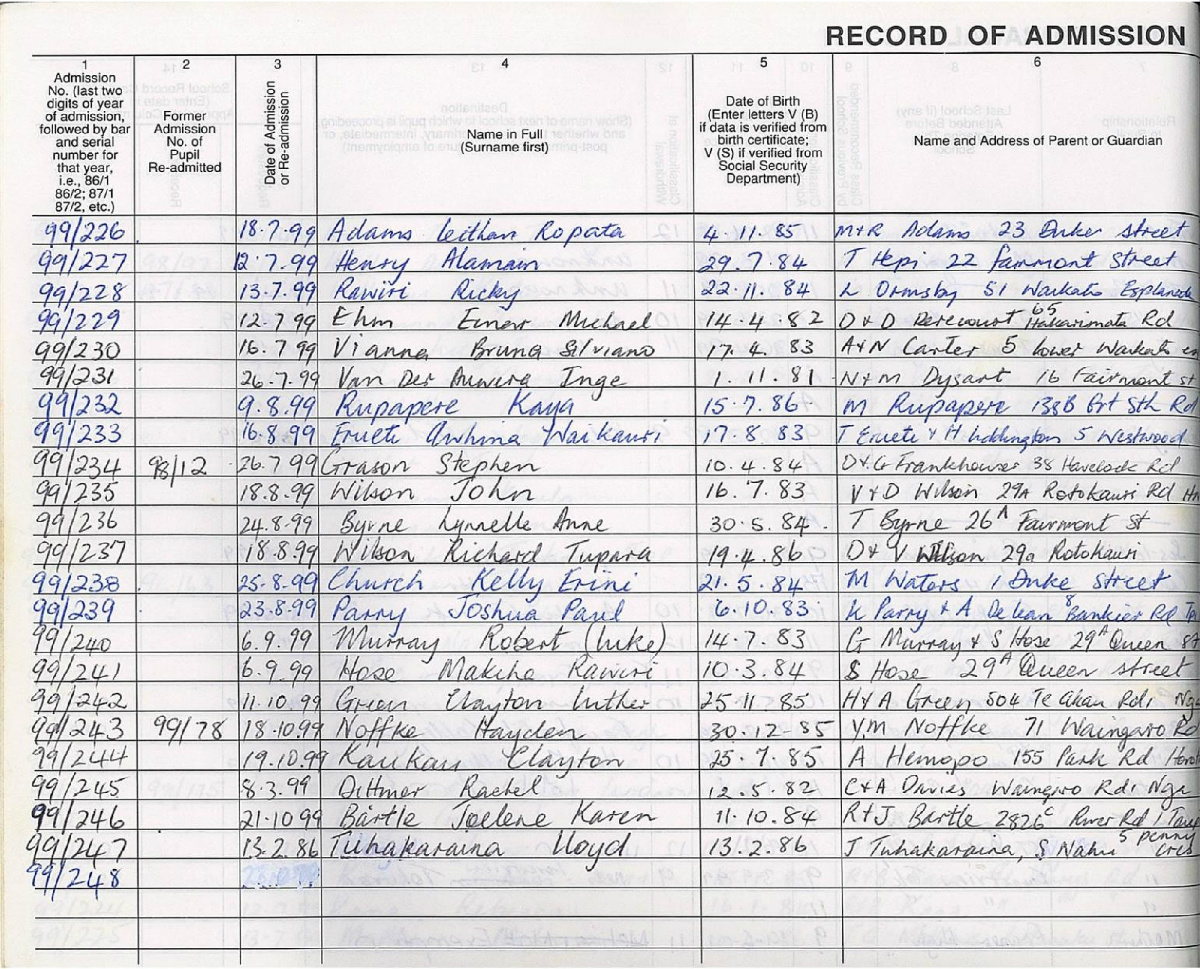 RECORD OF ADMISSION
1 2 3 4 5 6
Admission No. (last two digits of year of admission, followed by bar and serial number for that year, i.e., 86/1 86/2; 87/1 87/2, etc.)
Former Admission No. of Pupil Re-admitted
Date of Admission or Re-admission
Name in Full (Surname first)
Date of Birth (Enter letters V (B) if data is verified from birth certificate; V (S) if verified from Social Security Department)
Name and Address of Parent or Guardian
99/226 18.7.99 Adams Leithan Ropata 4.11.85 M+R Adams 23 Duke street
99/227 12.7.99 Henry Alamain 29.7.84 T Hepi 22 fairmont Street
99/228 13.7.99 Rawiri Ricky 22.11.84 L Ormsby 51 Waikato Esplanade
99/229 12.7.99 Ehm Einar Michael 14.4.82 D+D Derecourt 65 Hakarimata Rd
99/230 16.7.99 Vianna Bruna Silviano 17.4.83 A+N Carter 5 lower Waikato
99/231 26.7.99 Van Der Auwera Inge 1.11.81 N+M Dysart 16 Fairmont st
99/232 9.8.99 Rupapere Kaya 15.7.86 M Rupapere 138B Grt Sth Rd
99/233 16.8.99 Erueti Awhina Waikauri 17.8.83 T Erueti + H Liddington 5 Westwood
99/234 98/12 26.7.99 Grason Stephen 10.4.84 D+G Frankhouser 38 Havelock Rd
99/235 18.8.99 Wilson John 16.7.83 V+D Wilson 29A Rotokauri Rd
99/236 24.8.99 Byrne Lynnelle Anne 30.5.84. T Byrne 26A Fairmont St
99/237 18.8.99 Wilson Richard Tupara 19.4.86 D+V Wilson 29a Rotokauri
99/238 25.8.99 Church Kelly Erini 21.5.84 M Waters 1 Duke street
99/239 23.8.99 Parry Joshua Paul 6.10.83 K Parry + A Delean 8 Bankier Rd
99/240 6.9.99 Murray Robert (Luke) 14.7.83 G Murray + S Hose 29A Queen
99/241 6.9.99 Hose Makiha Rawiri 10.3.84 S Hose 29A Queen street
99/242 11.10.99 Green Clayton Luther 25.11.85 H+A Green 504 Te Akau Rd1 Nga
99/243 99/78 18.10.99 Noffke Hayden 30.12.85 Y.M Noffke 71 Waingaro Rd
99/244 19.10.99 Kaukau Clayton 25.7.85 A Hemopo 155 Park Rd
99/245 8.3.99 Dittmer Rachel 12.5.82 C+A Davies Waingaro Rd1 Nga
99/246 21.10.99 Bartle Joelene Karen 11.10.84 R+J Bartle 2826c River Rd 1
99/247 13.2.86 Tuhakaraina Lloyd 13.2.86 J Tuhakaraina, S Nahu 5 penny cres
99/248